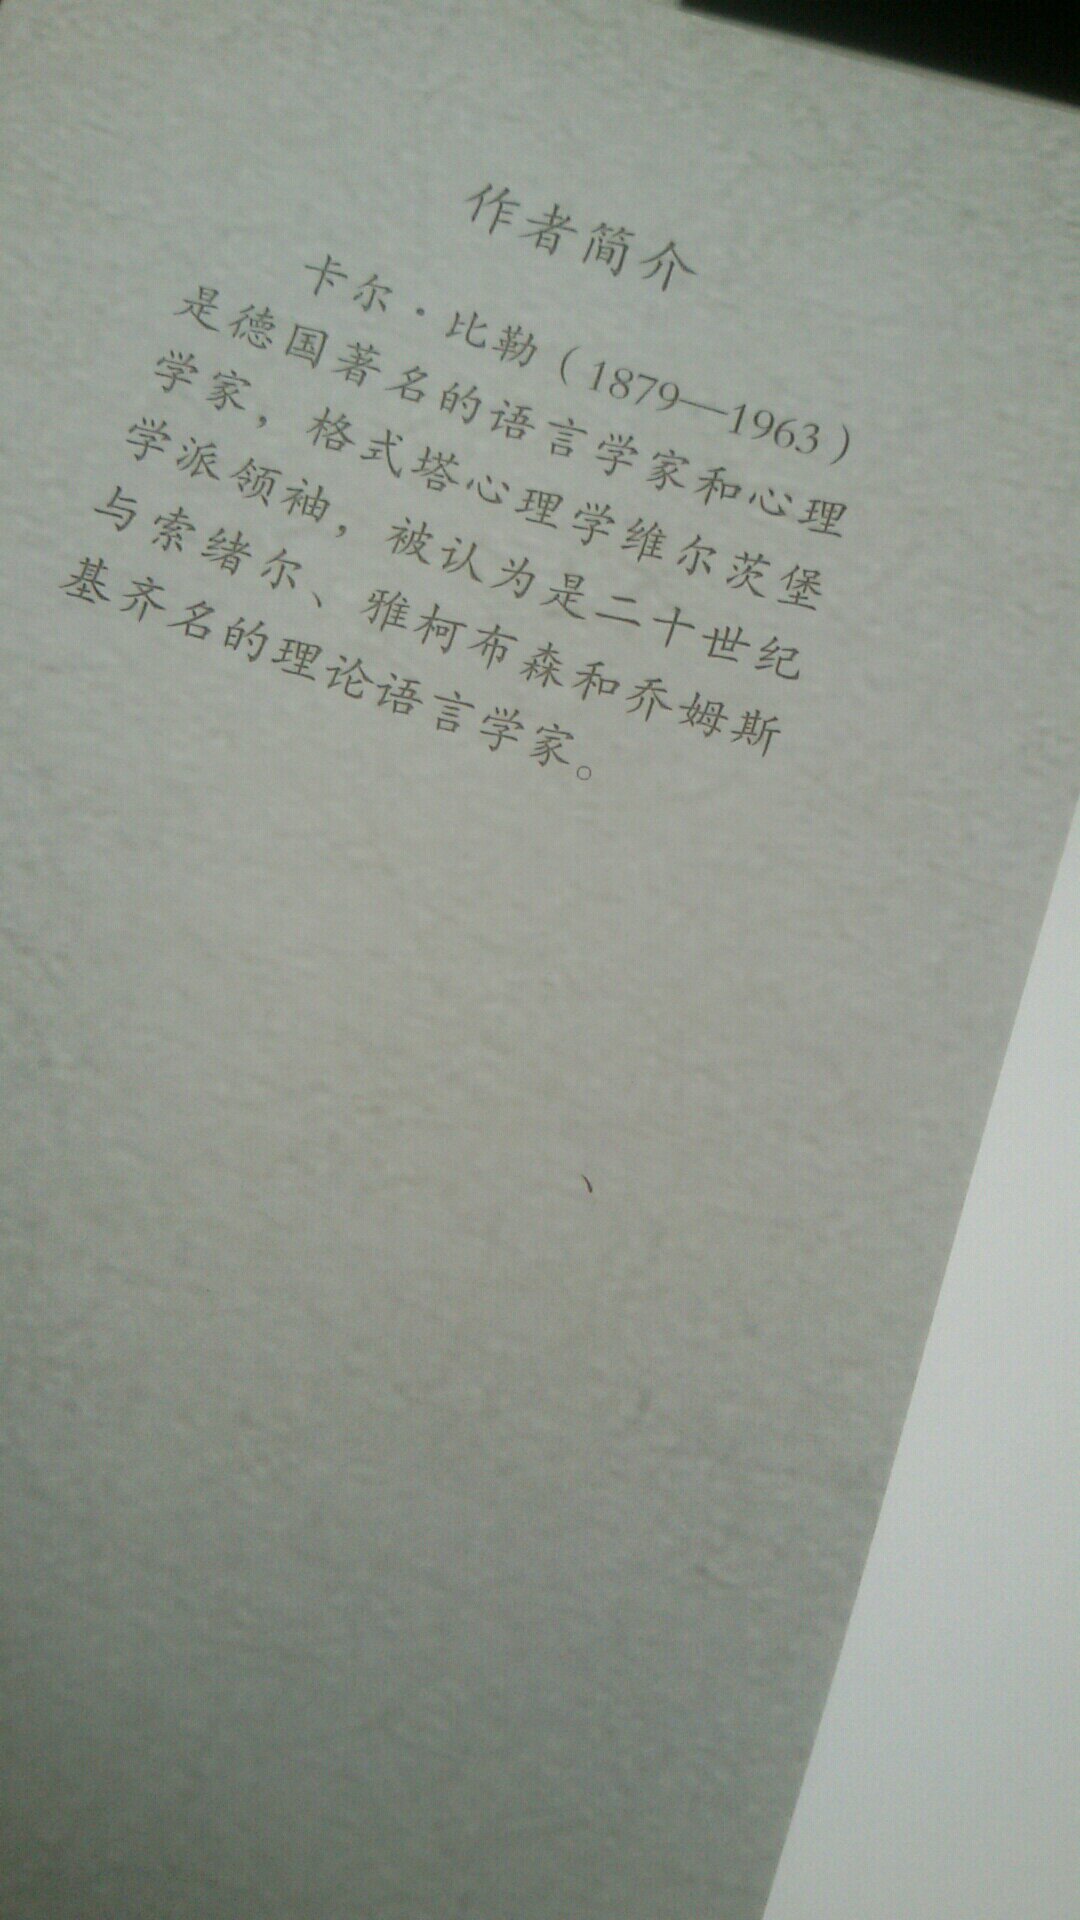 作者简介
卡尔·比勒（1879—1963）
是德国著名的语言学家和心理
学家，格式塔心理学维尔茨堡
学派领袖，被认为是二十世纪
与索绪尔、雅柯布森和乔姆斯
基齐名的理论语言学家。